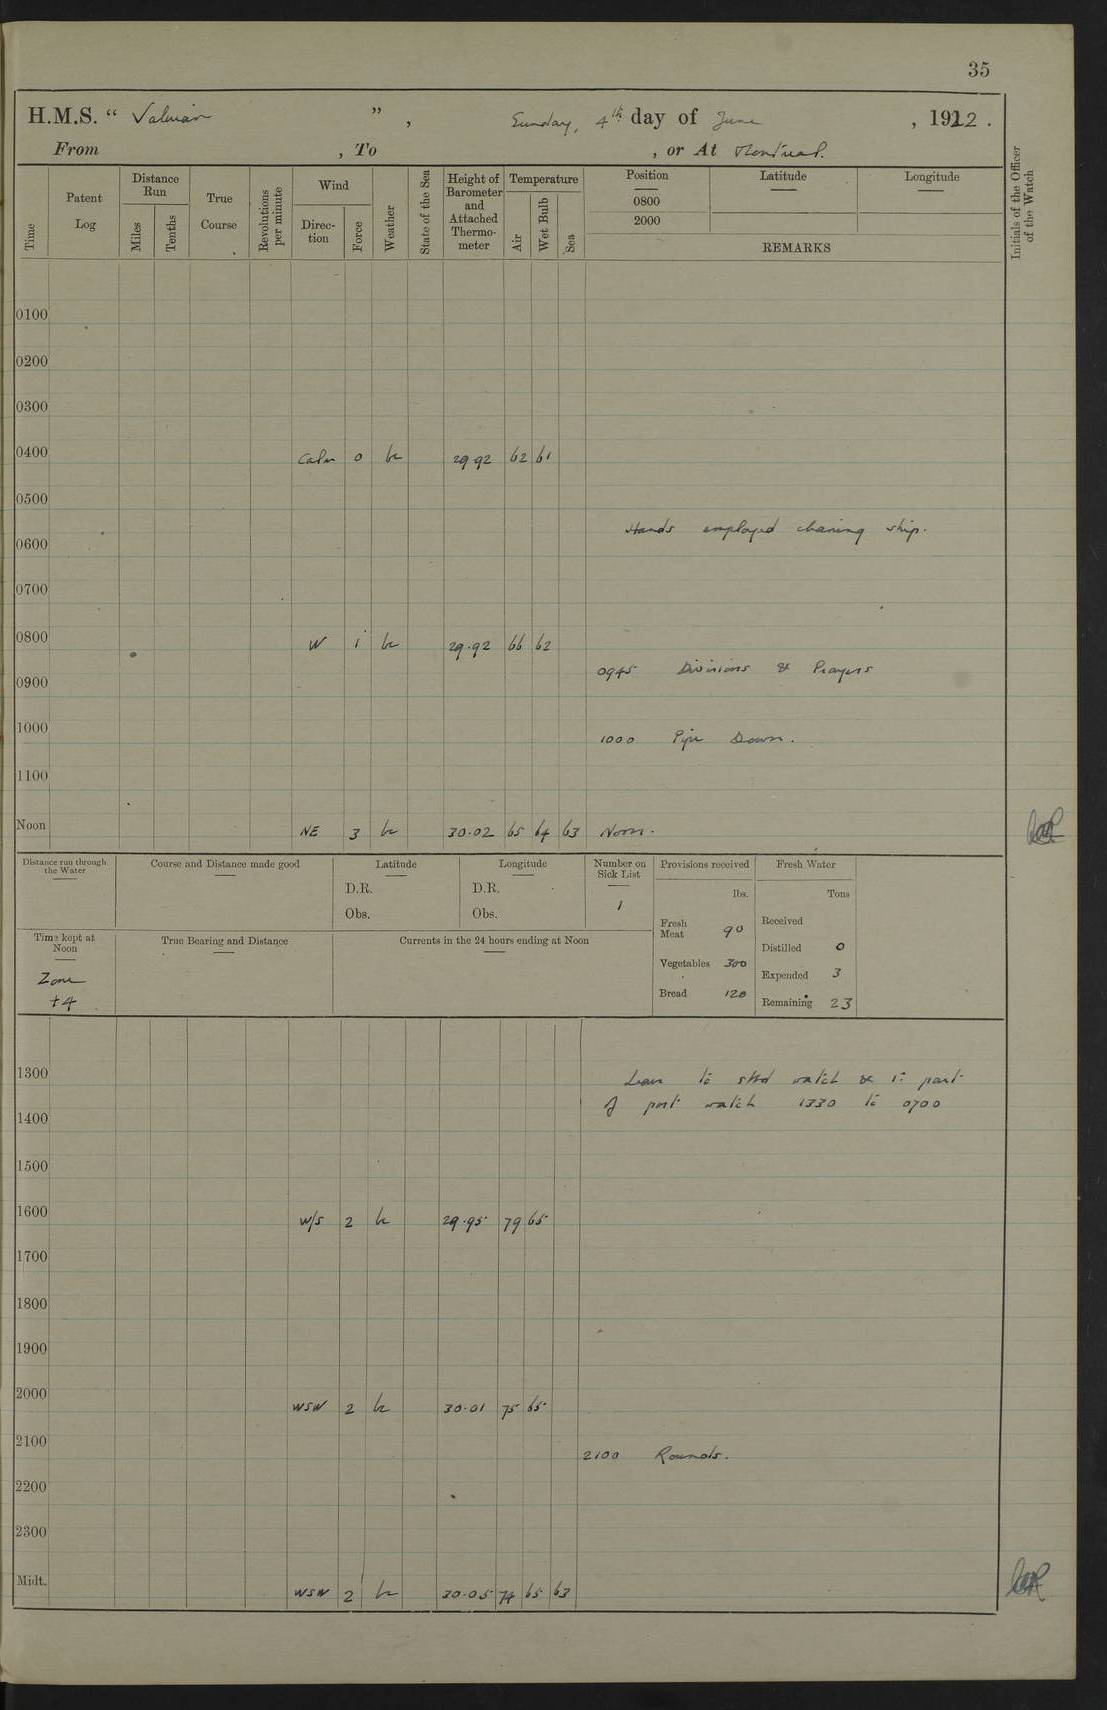 35
H.M.S. " Valerian " , Sunday, 4th day of June , 1922 .
From , To , or At Montreal.
Time
Patent Log
Distance Run
Miles
Tenths
True Course
Revolutions per minute
Wind
Direction
Force
Weather
State of the Sea
Height of Barometer and Attached Thermometer
Temperature
Air
Wet Bulb
Sea
Position
0800
2000
Latitude
Longitude
REMARKS
Initials of the Officer of the Watch
0100
0200
0300
0400 Calm 0 bc 29 92 62 61
0500
Hands employed cleaning ship.
0600
0700
0800 W 1 bc 29.92 66 62
0945 Divisions & Prayers
0900
1000 1000 Pipe Down.
1100
Noon NE 3 bc 30.02 65 64 63 Noon.
Distance run through the Water
Course and Distance made good
Latitude
D.R.
Obs.
Longitude
D.R.
Obs.
Number on Sick List
1
Provisions received
lbs.
Fresh Meat 90
Vegetables 300
Bread 120
Fresh Water
Tons
Received
Distilled 0
Expended 3
Remaining 23
Time kept at Noon
Zone
+4
True Bearing and Distance
Currents in the 24 hours ending at Noon
1300 Leave to stbd watch & 1st part
1400 of port watch 1330 to 0700
1500
1600 W/S 2 bc 29.95 79 65
1700
1800
1900
2000 WSW 2 bc 30.01 75 65
2100
2100 Rounds.
2200
2300
Midt. WSW 2 bc 30.05 74 65 63